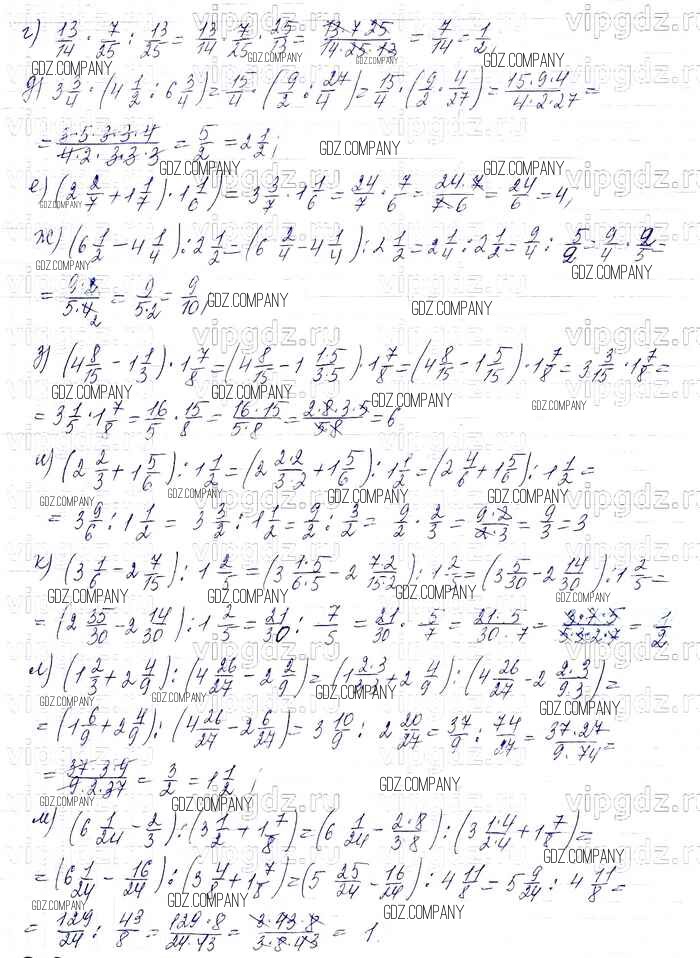 г) 13/14 · 7/25 : 13/25 = 13/14 · 7/25 · 25/13 = 13·7·25/14·25·13 = 7/14 = 1/2,
д) 3 3/4 · (4 1/2 : 6 3/4) = 15/4 · (9/2 : 27/4) = 15/4 · (9/2 · 4/27) = 15·9·4/4·2·27 =
= 3·5·3·3·4/4·2·3·3·3 = 5/2 = 2 1/2;
е) (2 2/7 + 1 1/7) · 1 1/6 = 3 3/7 · 1 1/6 = 24/7 · 7/6 = 24·7/7·6 = 24/6 = 4,
ж) (6 1/2 − 4 1/4) : 2 1/2 = (6 2/4 − 4 1/4) : 2 1/2 = 2 1/4 : 2 1/2 = 9/4 : 5/2 = 9/4 · 2/5 =
= 9·2/5·4 = 9/5·2 = 9/10,
з) (4 8/15 − 1 1/3) · 1 7/8 = (4 8/15 − 1 1·5/3·5) · 1 7/8 = (4 8/15 − 1 5/15) · 1 7/8 = 3 3/15 · 1 7/8 =
= 3 1/5 · 1 7/8 = 16/5 · 15/8 = 16·15/5·8 = 2·8·3·5/5·8 = 6
и) (2 2/3 + 1 5/6) : 1 1/2 = (2 2·2/3·2 + 1 5/6) : 1 1/2 = (2 4/6 + 1 5/6) : 1 1/2 =
= 3 9/6 : 1 1/2 = 3 3/2 : 1 1/2 = 9/2 : 3/2 = 9/2 · 2/3 = 9·2/2·3 = 9/3 = 3
к) (3 1/6 − 2 7/15) : 1 2/5 = (3 1·5/6·5 − 2 7·2/15·2) : 1 2/5 = (3 5/30 − 2 14/30) : 1 2/5 =
= (2 35/30 − 2 14/30) : 1 2/5 = 21/30 : 7/5 = 21/30 · 5/7 = 21·5/30·7 = 3·7·5/5·3·2·7 = 1/2
л) (1 2/3 + 2 4/9) : (4 26/27 − 2 2/9) = (1 2·3 + 2 4/9) : (4 26/27 − 2 2·3/9·3) =
= (1 6/9 + 2 4/9) : (4 26/27 − 2 6/27) = 3 10/9 : 2 20/27 = 37/9 : 74/27 = 37·27/9·74 =
= 3/2 = 1 1/2;
м) (6 1/24 − 2/3) : (3 1/2 + 1 7/8) = (6 1/24 − 2·8/3·8) : (3 1·4/2·4 + 1 7/8) =
= (6 1/24 − 16/24) : (3 4/8 + 1 7/8) = (5 25/24 − 16/24) : 4 11/8 = 5 9/24 : 4 11/8 =
= 129/24 : 43/8 = 129·8/24·43 = 3·43·8/3·8·43 = 1.
vipgdz.ru
GDZ.COMPANY